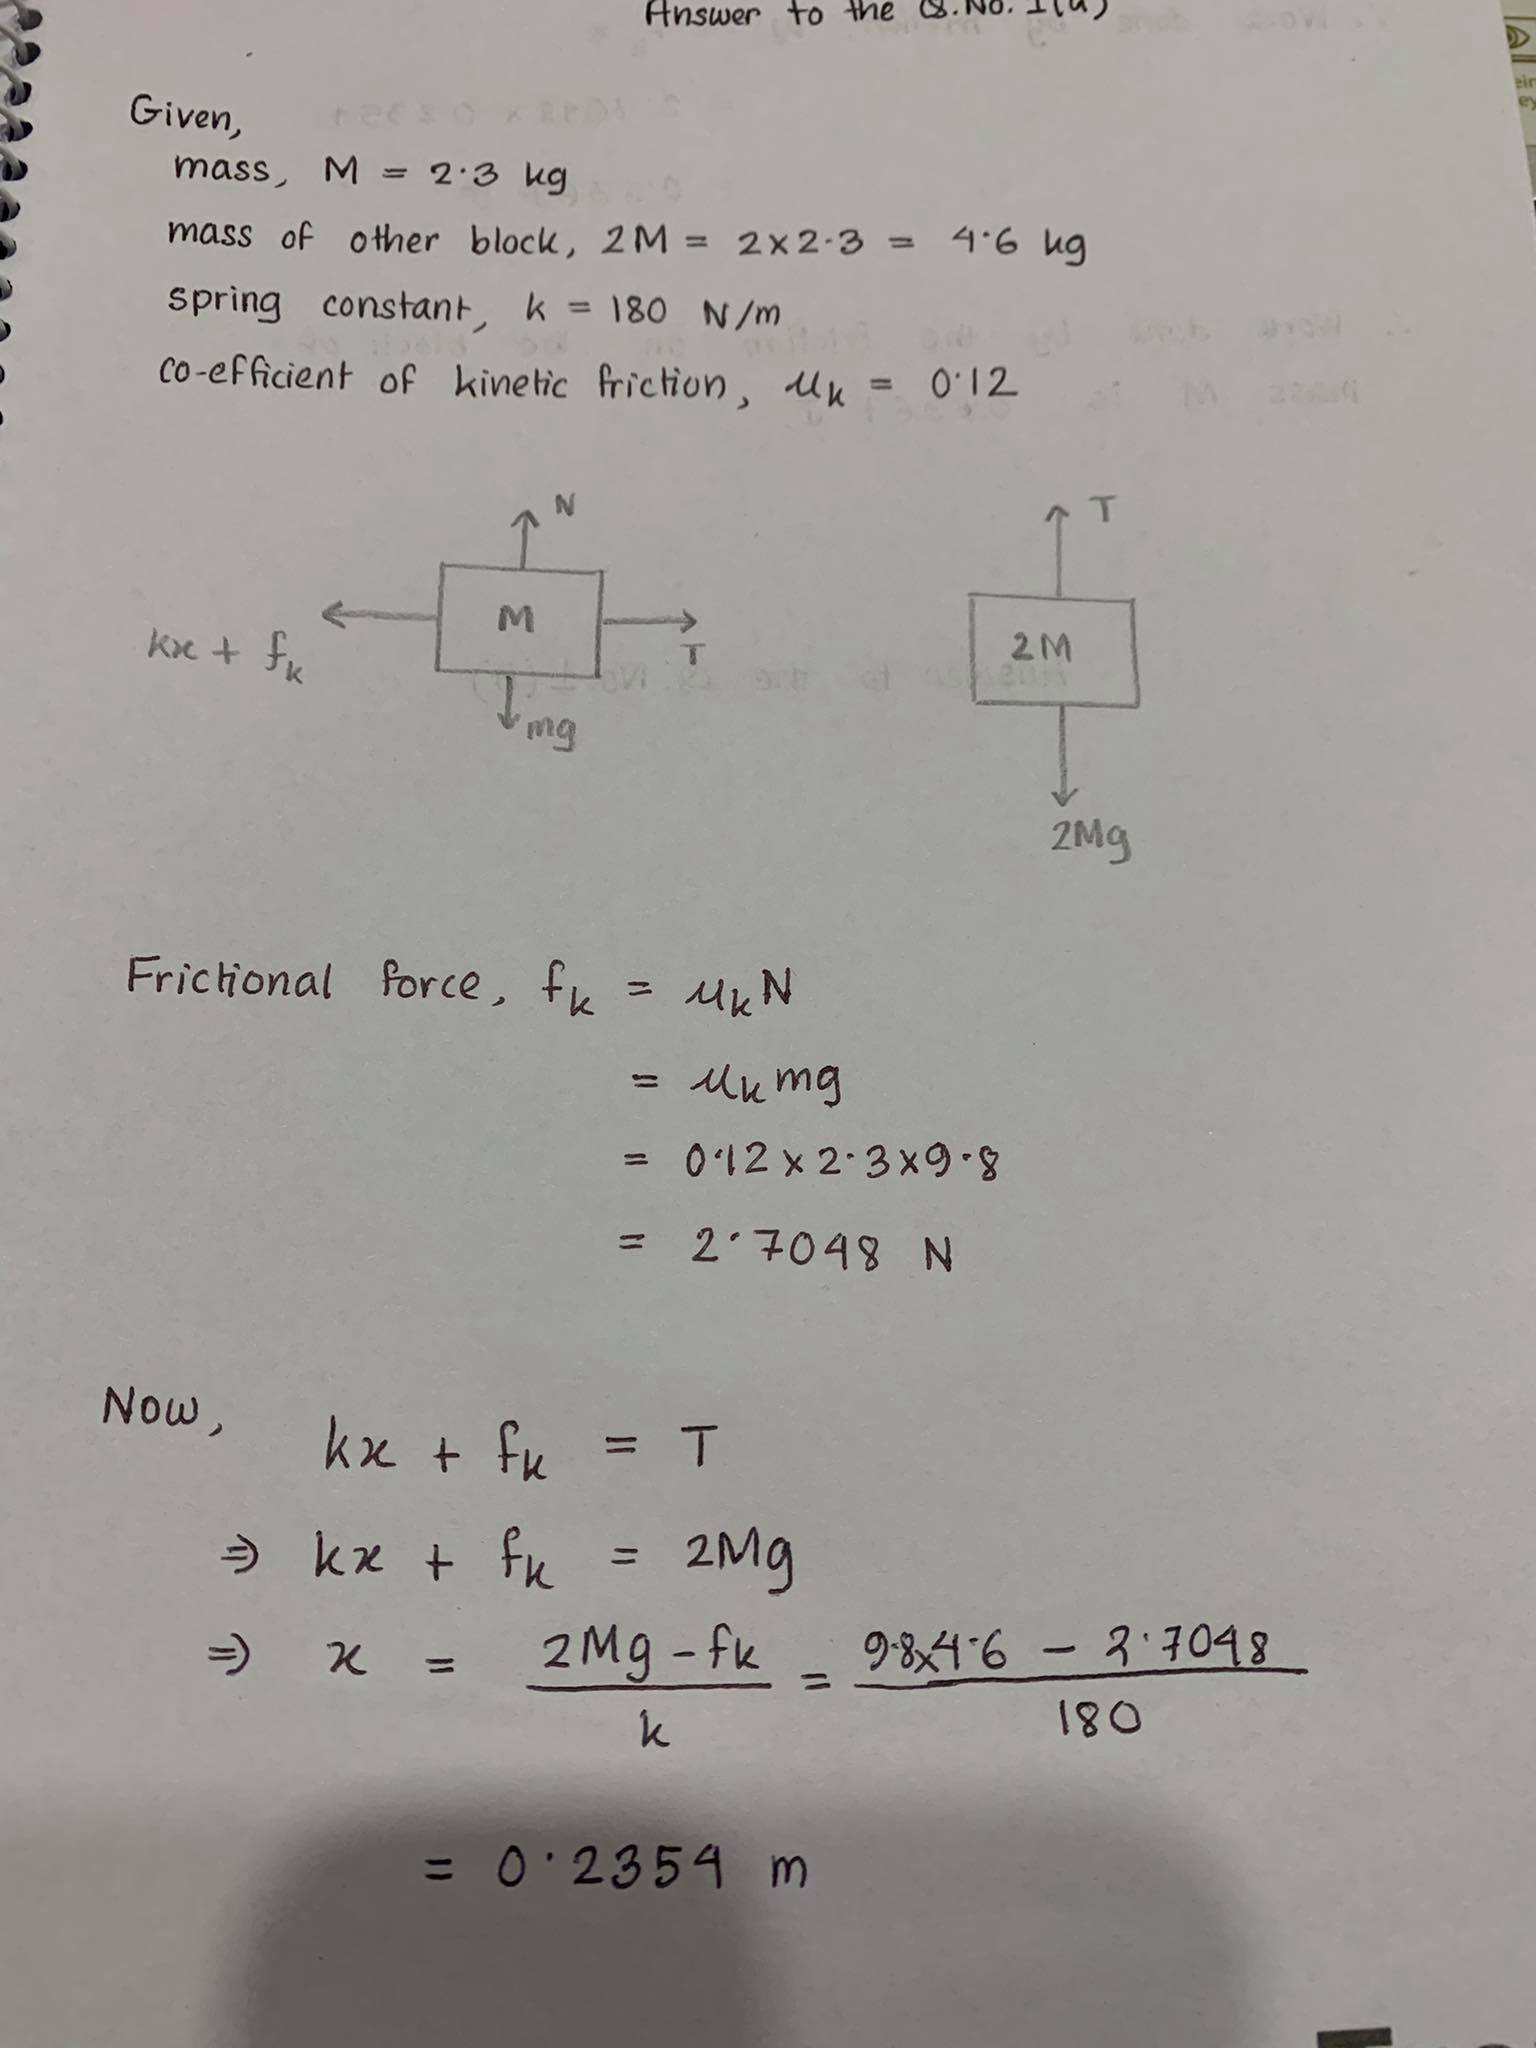 Answer to the Q.No. 1(a)
Given,
mass, M = 2.3 kg
mass of other block, 2M = 2x2.3 = 4.6 kg
spring constant, k = 180 N/m
co-efficient of kinetic friction, μk = 0.12
N
T
M
2M
kx + fk
T
mg
2Mg
Frictional force, fk = μkN
= μkmg
= 0.12 x 2.3 x 9.8
= 2.7048 N
Now,
kx + fk = T
⇒ kx + fk = 2Mg
⇒ x = 2Mg - fk / k = 9.8x4.6 - 2.7048 / 180
= 0.2354 m